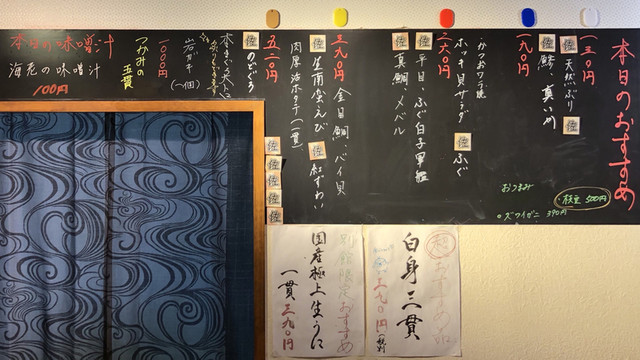 本日のおすすめ
一三〇円
佐 天然ぶり
佐
佐 鯵、真いか
一九〇円
おつまみ
枝豆 500円
ズワイガニ 390円
かつおワラ焼
ホッキ貝サラダ 佐 ふぐ
二六〇円
佐 平目、ふぐ白子軍艦
佐 真鯛、メバル
三九〇円 金目鯛、バイ貝
佐 生南蛮えび 佐 紅ずわい
肉厚活ホタテ一貫
五二〇円
佐 のどぐろ
佐
佐
佐
佐
佐
岩ガキ (一個)
1000円
つかみの五貫
本日の味噌汁
海老の味噌汁
100円
おすすめ
白身三貫
三九〇円
別館限定おすすめ
国産極上生うに
一貫 三九〇円